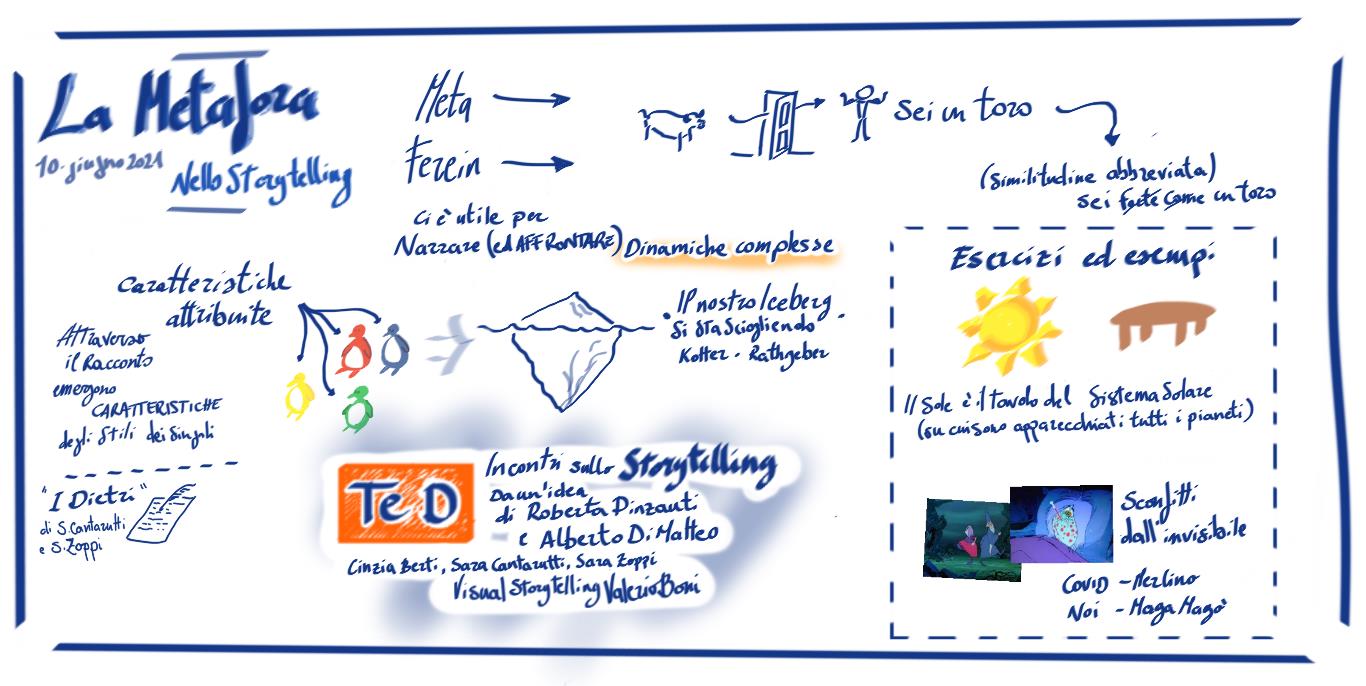 La Metafora
10. giugno 2021
Nello Storytelling
Meta
Ferein
Sei un toro
(similitudine abbreviata)
Sei forte come un toro
Ci è utile per
Narrare (ed AFFRONTARE) Dinamiche complesse
Caratteristiche
attribuite
Attraverso
il Racconto
emergono
CARATTERISTICHE
degli Stili dei Singoli
"I Dietri"
di S. Cantarutti
e S. Zoppi
Il nostro Iceberg
Si sta Sciogliendo
Kotter - Rathgeber
TeD
Incontri sullo Storytelling
Da un'idea
di Roberta Pinzauti
e Alberto Di Matteo
Cinzia Berti, Sara Cantarutti, Sara Zoppi
Visual Storytelling Valerio Boni
Esercizi ed esempi
Il Sole è il tavolo del Sistema Solare
(su cui sono apparecchiati tutti i pianeti)
Sconfitti
dall'invisibile
COVID - Merlino
Noi - Maga Magò